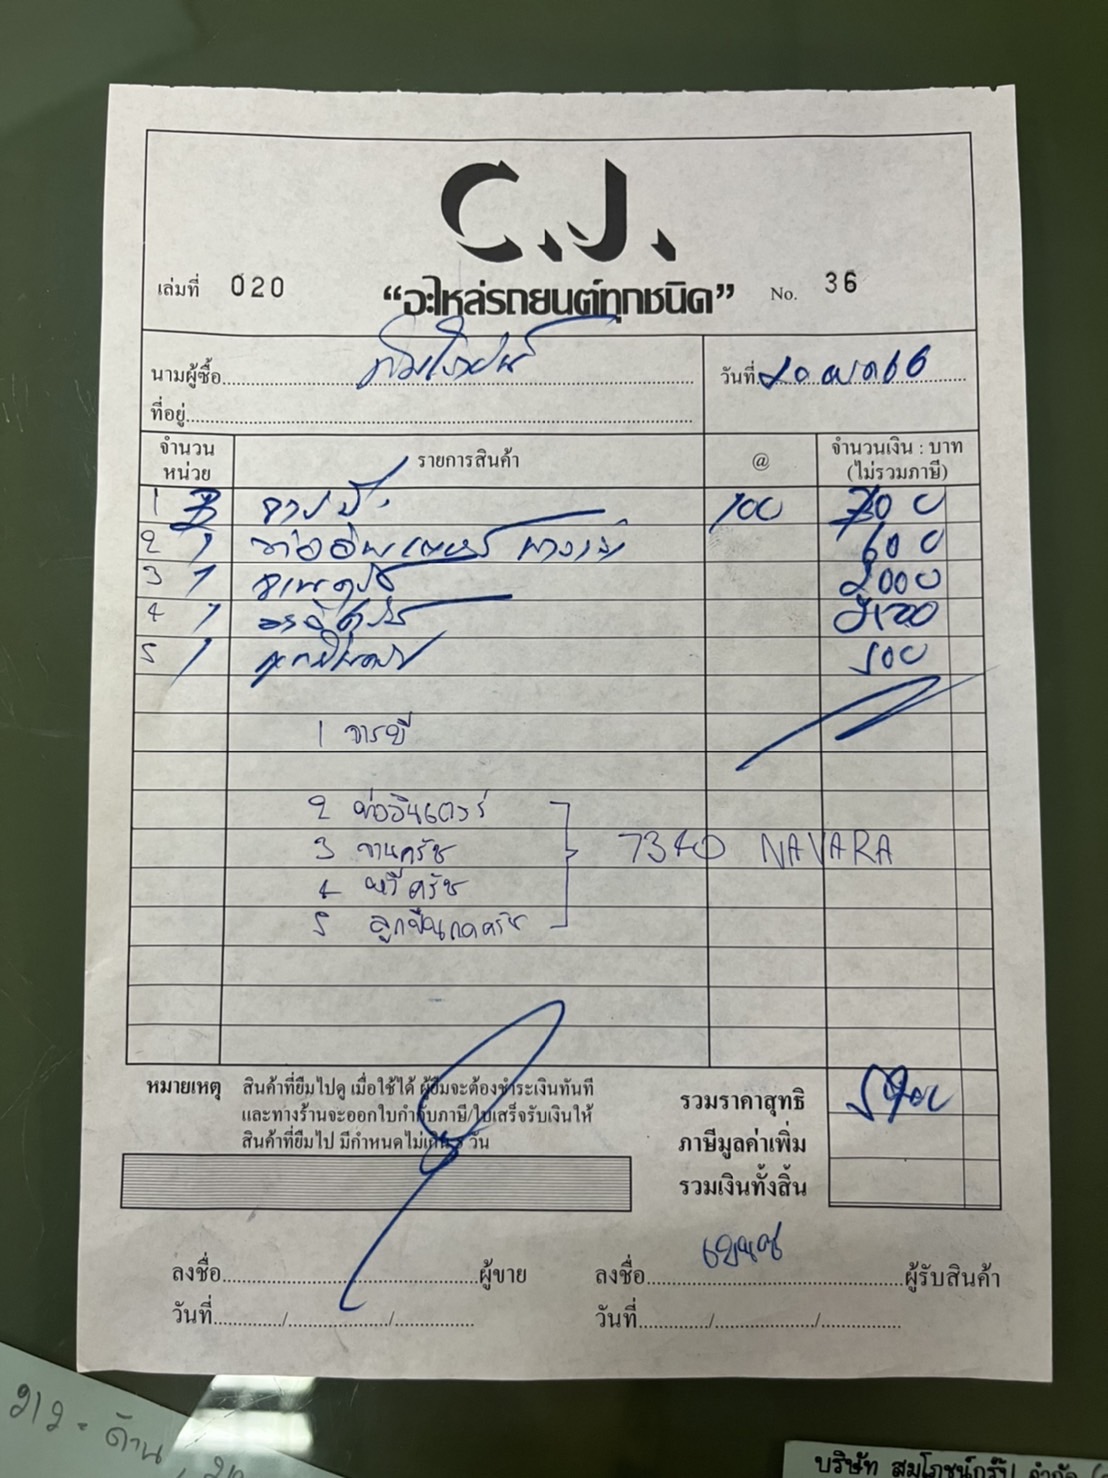 C.J.
เล่มที่ 020 “อะไหล่รถยนต์ทุกชนิด” No. 36
นามผู้ซื้อ วันที่ 20
ที่อยู่
จำนวน หน่วย รายการสินค้า @ จำนวนเงิน : บาท (ไม่รวมภาษี)
1 3 จารบี 100 300
2 1 ท่ออินเตอร์ 600
3 1 2000
4 1
5 1 500
1 จารบี
2 ท่ออินเตอร์
3 จานครัช 7340 NAVARA
4 หวีครัช
5 ลูกปืนกดครัช
หมายเหตุ สินค้าที่ยืมไปดู เมื่อใช้ได้ ผู้ยืมจะต้องชำระเงินทันที
และทางร้านจะออกใบกำกับภาษี/ใบเสร็จรับเงินให้
สินค้าที่ยืมไป มีกำหนดไม่เกิน วัน
รวมราคาสุทธิ
ภาษีมูลค่าเพิ่ม
รวมเงินทั้งสิ้น
ลงชื่อ ผู้ขาย ลงชื่อ ผู้รับสินค้า
วันที่ / / วันที่ / /
212 = ด้าน
บริษัท สมโภชน์กรุ๊ป จำกัด